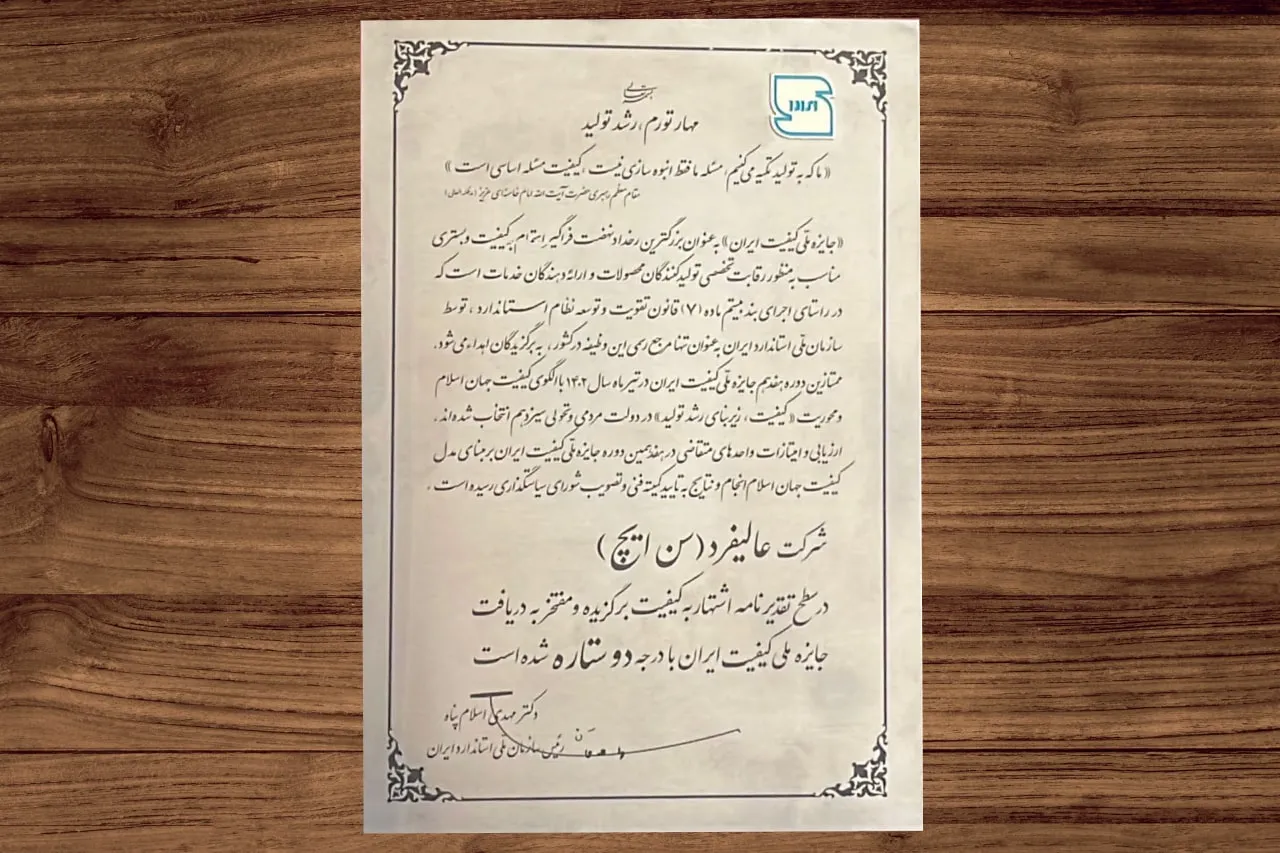 بسمه تعالی
مهار تورم، رشد تولید
«ما که به تولید تکیه می‌کنیم، مسئله ما فقط انبوه سازی نیست، کیفیت مسئله اساسی است»
مقام معظم رهبری حضرت آیت الله امام خامنه‌ای عزیز (مدظله العالی)
«جایزه ملّی کیفیت ایران» به عنوان بزرگترین رخداد نهضت فراگیر اهتمام به کیفیت و بستری
مناسب به منظور رقابت تخصصی تولیدکنندگان محصولات و ارائه دهندگان خدمات است که
در راستای اجرای بند بیستم ماده (۷) قانون تقویت و توسعه نظام استاندارد، توسط
سازمان ملّی استاندارد ایران به عنوان تنها مرجع رسمی این وظیفه در کشور، به برگزیدگان اهداء می‌شود.
ممتازین دوره هفدهم جایزه ملّی کیفیت ایران در تیر ماه سال ۱۴۰۲ با الگوی کیفیت جهان اسلام
و محوریت «کیفیت، زیربنای رشد تولید» در دولت مردمی و تحولی سیزدهم انتخاب شده‌اند.
ارزیابی و امتیازات واحدهای متقاضی در هفدهمین دوره جایزه ملّی کیفیت ایران بر مبنای مدل
کیفیت جهان اسلام انجام و نتایج به تایید کمیته فنی و تصویب شورای سیاستگذاری رسیده است.
شرکت عالیفرد (سن ایچ)
در سطح تقدیرنامه اشتهار به کیفیت برگزیده و مفتخر به دریافت
جایزه ملی کیفیت ایران با درجه دو ستاره شده است
دکتر مهدی اسلام پناه
رئیس سازمان ملّی استاندارد ایران